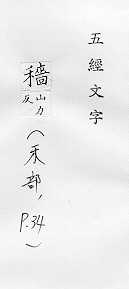 五經文字
穡
山力
反
(禾部, P.34)